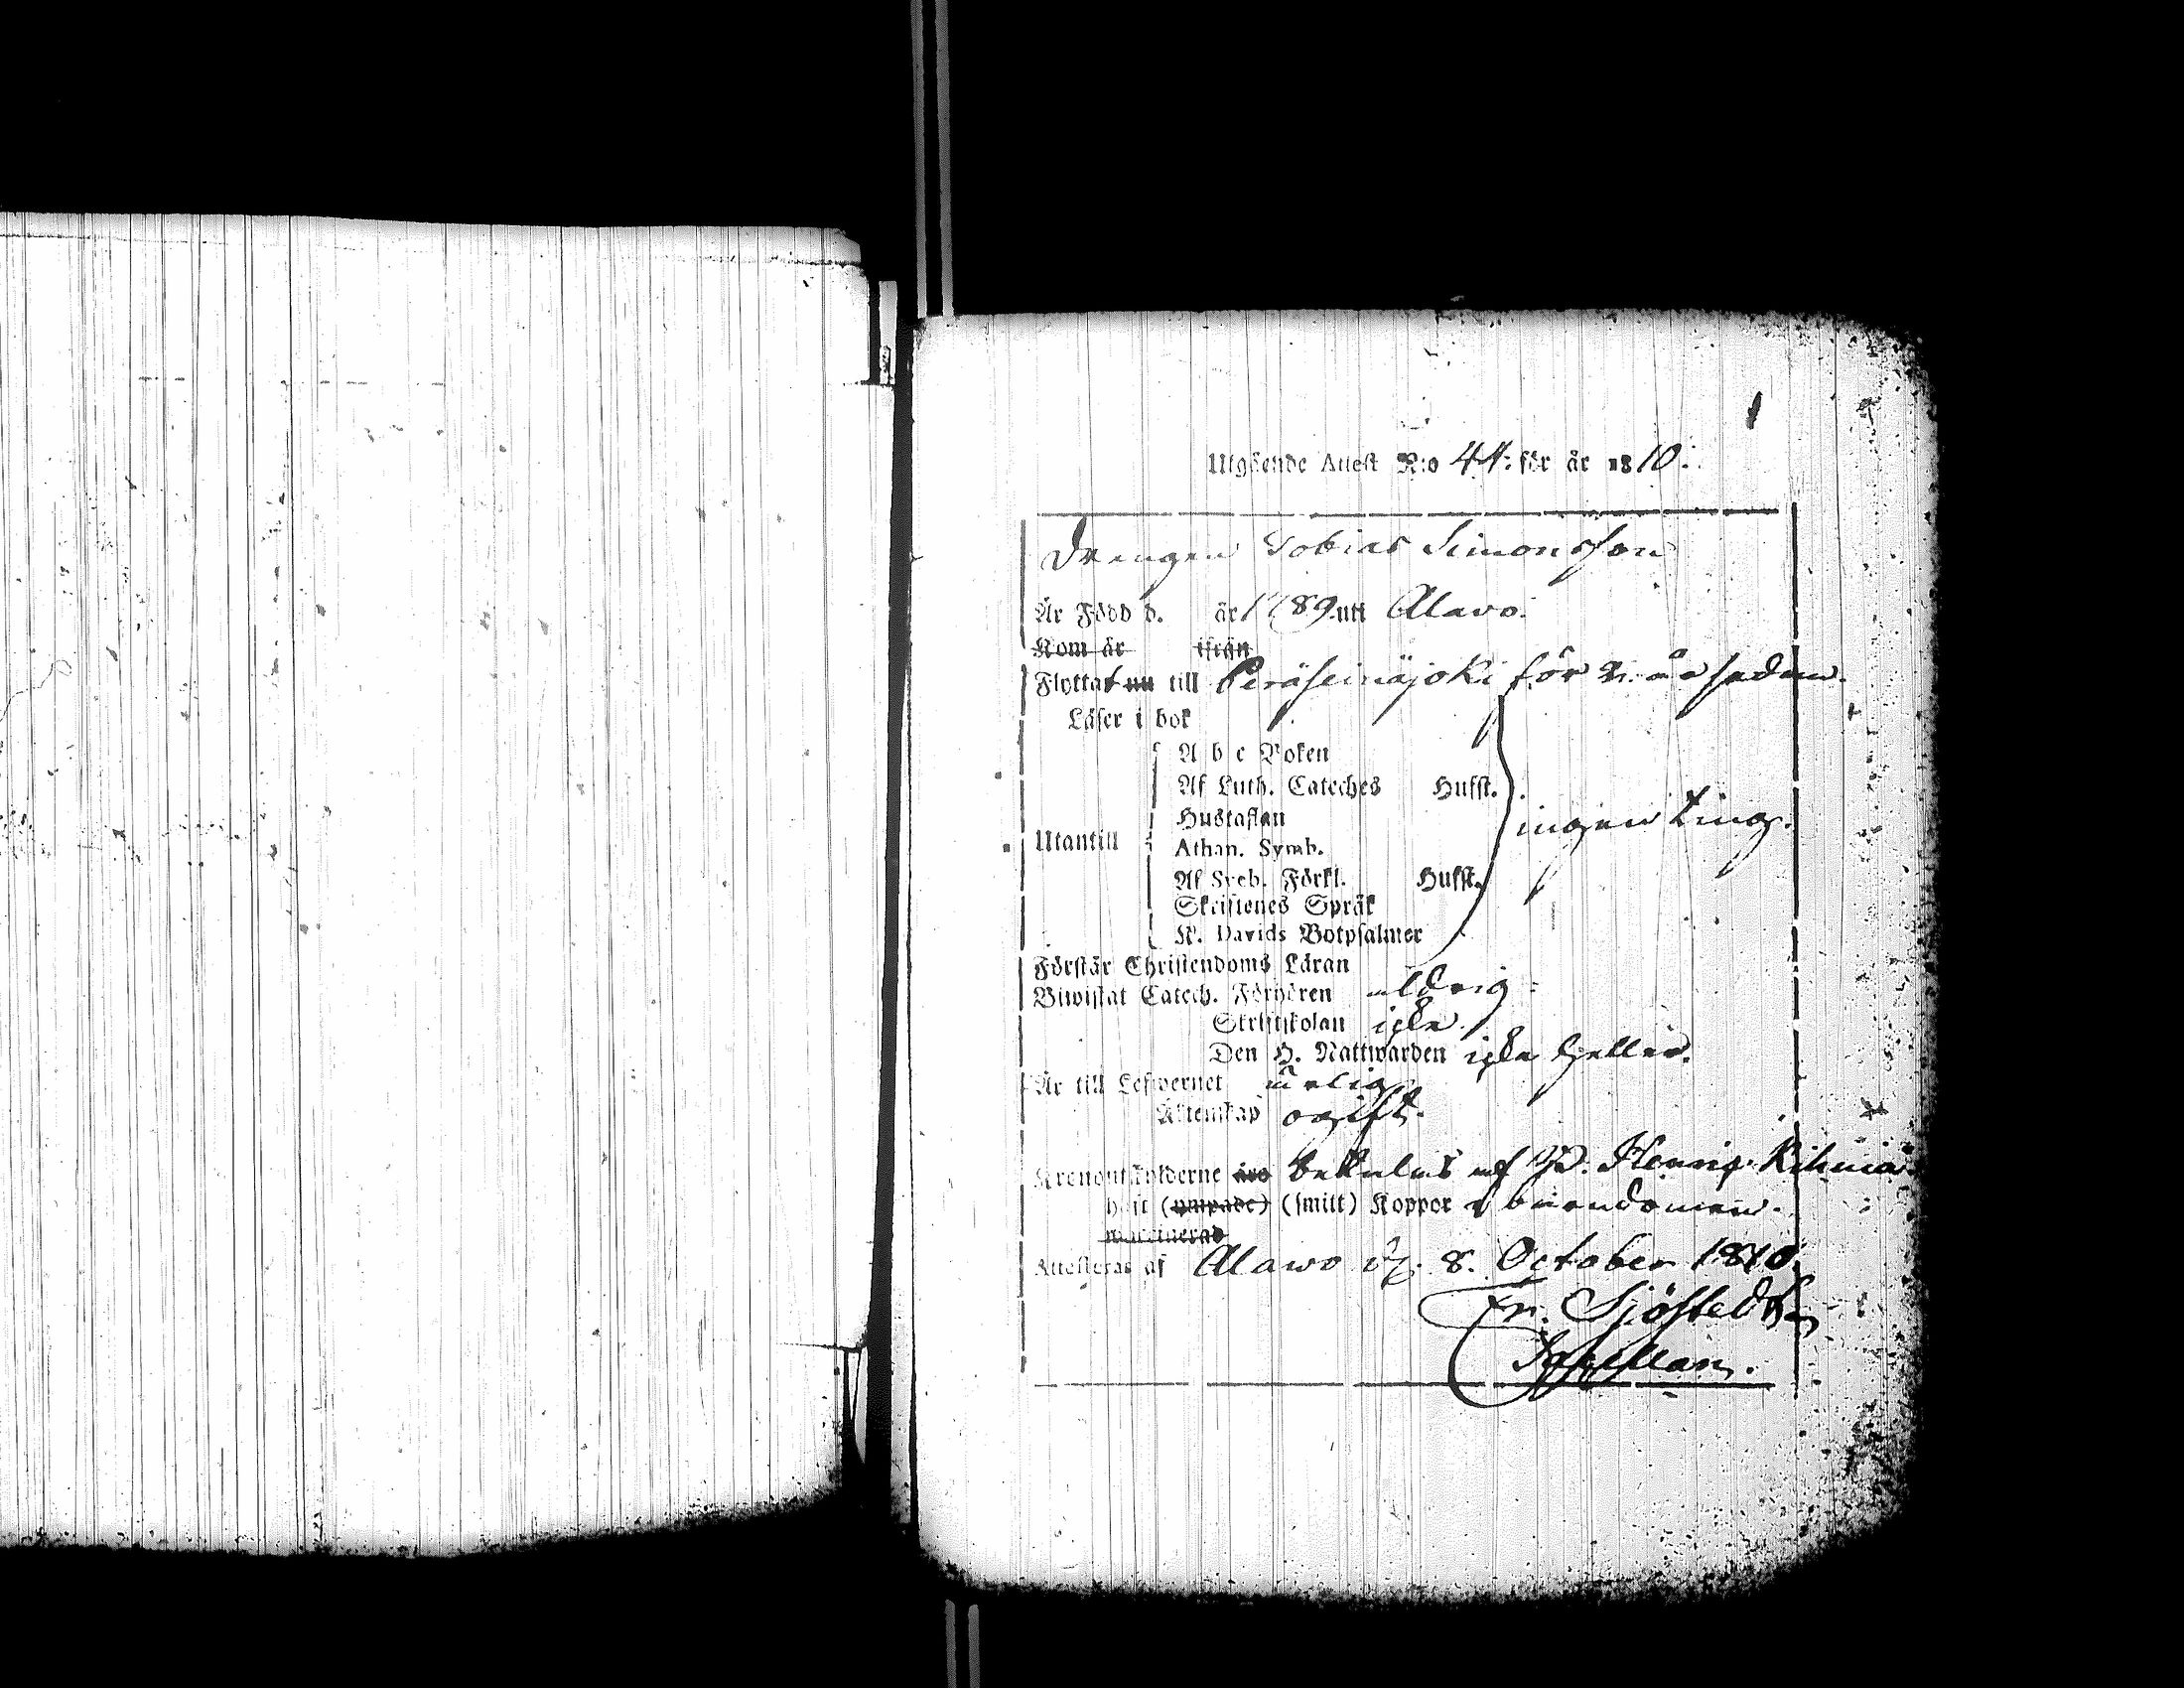 Utgående Attest N:o 44: för år 1810.
Drengen Tobias Simonsson
Är Född d. år 1789 uti Alavo.
Kom år ifrån
Flyttat nu till Peräseinäjoki för 2. år sedan.
Läser i bok
A b c Boken
Af Luth. Cateches Hufst.
Hustaflan
ingen ting.
Utantill
Athan. Symb.
Af Sveb. Förkl. Hufst.
Skriftenes Språk
K. Davids Botpsalmer
Förstår Christendoms Läran
Biwistat Catech. Förhören aldrig
Skriftskolan icke
Den H. Nattwarden icke heller.
Är till Lefwernet ärlig
Äktenskap ogift.
Kronoutskylderne äro betalas af Henric
haft (ympade) (smitt) Koppor i barndomen.
vaccinerad
Attesteras af Alawo d. 8. October 1810.
Fr. Sjöstedt
Capellan.